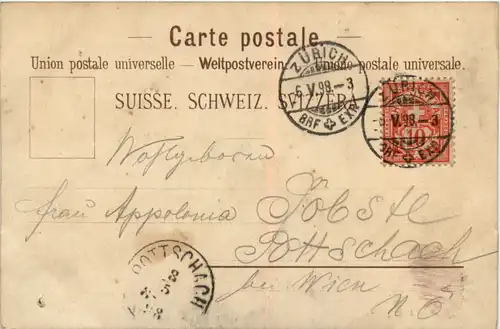 Carte postale.
Union postale universelle. — Weltpostverein. — Unione postale universale.
SUISSE. SCHWEIZ. SVIZZERA.
ZÜRICH
6.V.98.–3
BRF EXP.
ZÜRICH
6.V.98.–3
10
BRF EXP.
Wohlgeboren
Frau Appolonia Jöbstl
Pottschach
bei Wien
N.Ö.
POTTSCHACH
98